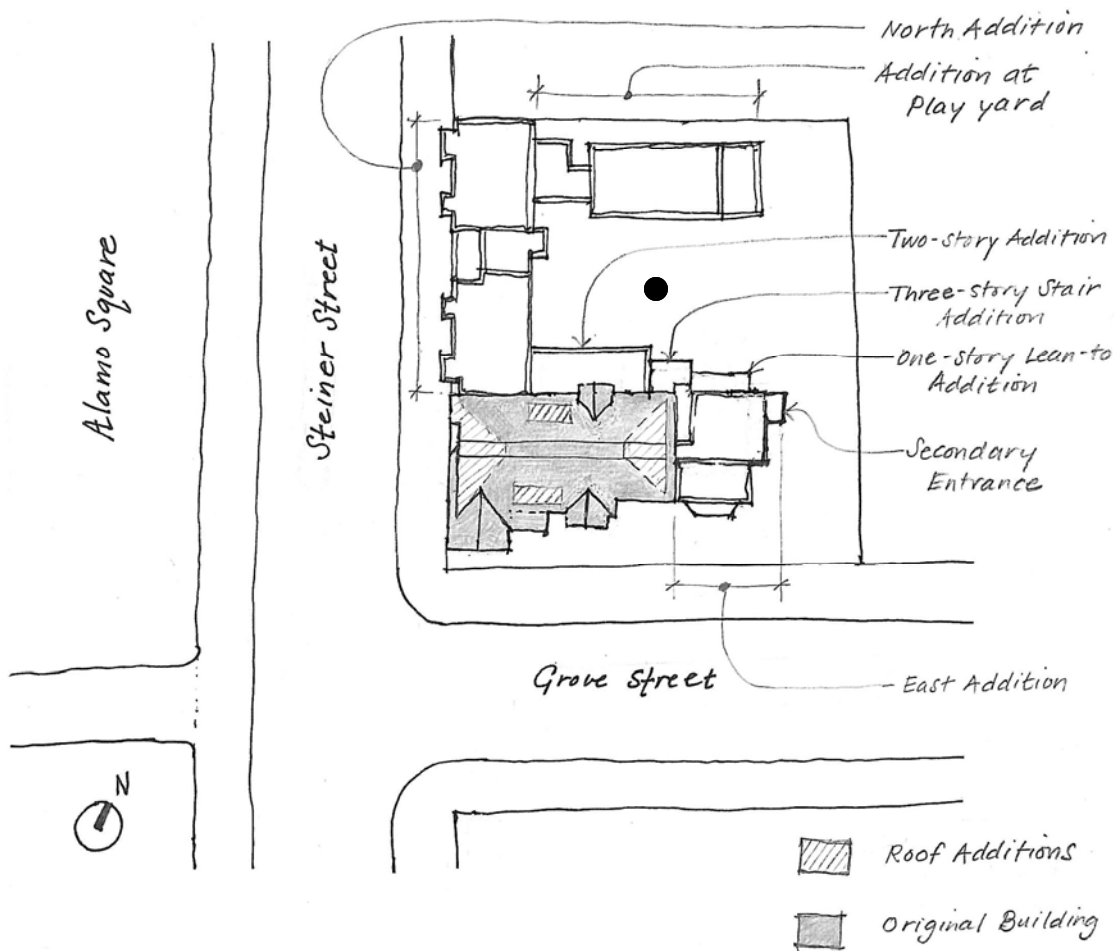 North Addition
Addition at
Play yard
Two-story Addition
Three-story Stair
Addition
One-story Lean-to
Addition
Secondary
Entrance
Alamo Square
Steiner Street
Grove Street
East Addition
N
Roof Additions
Original Building